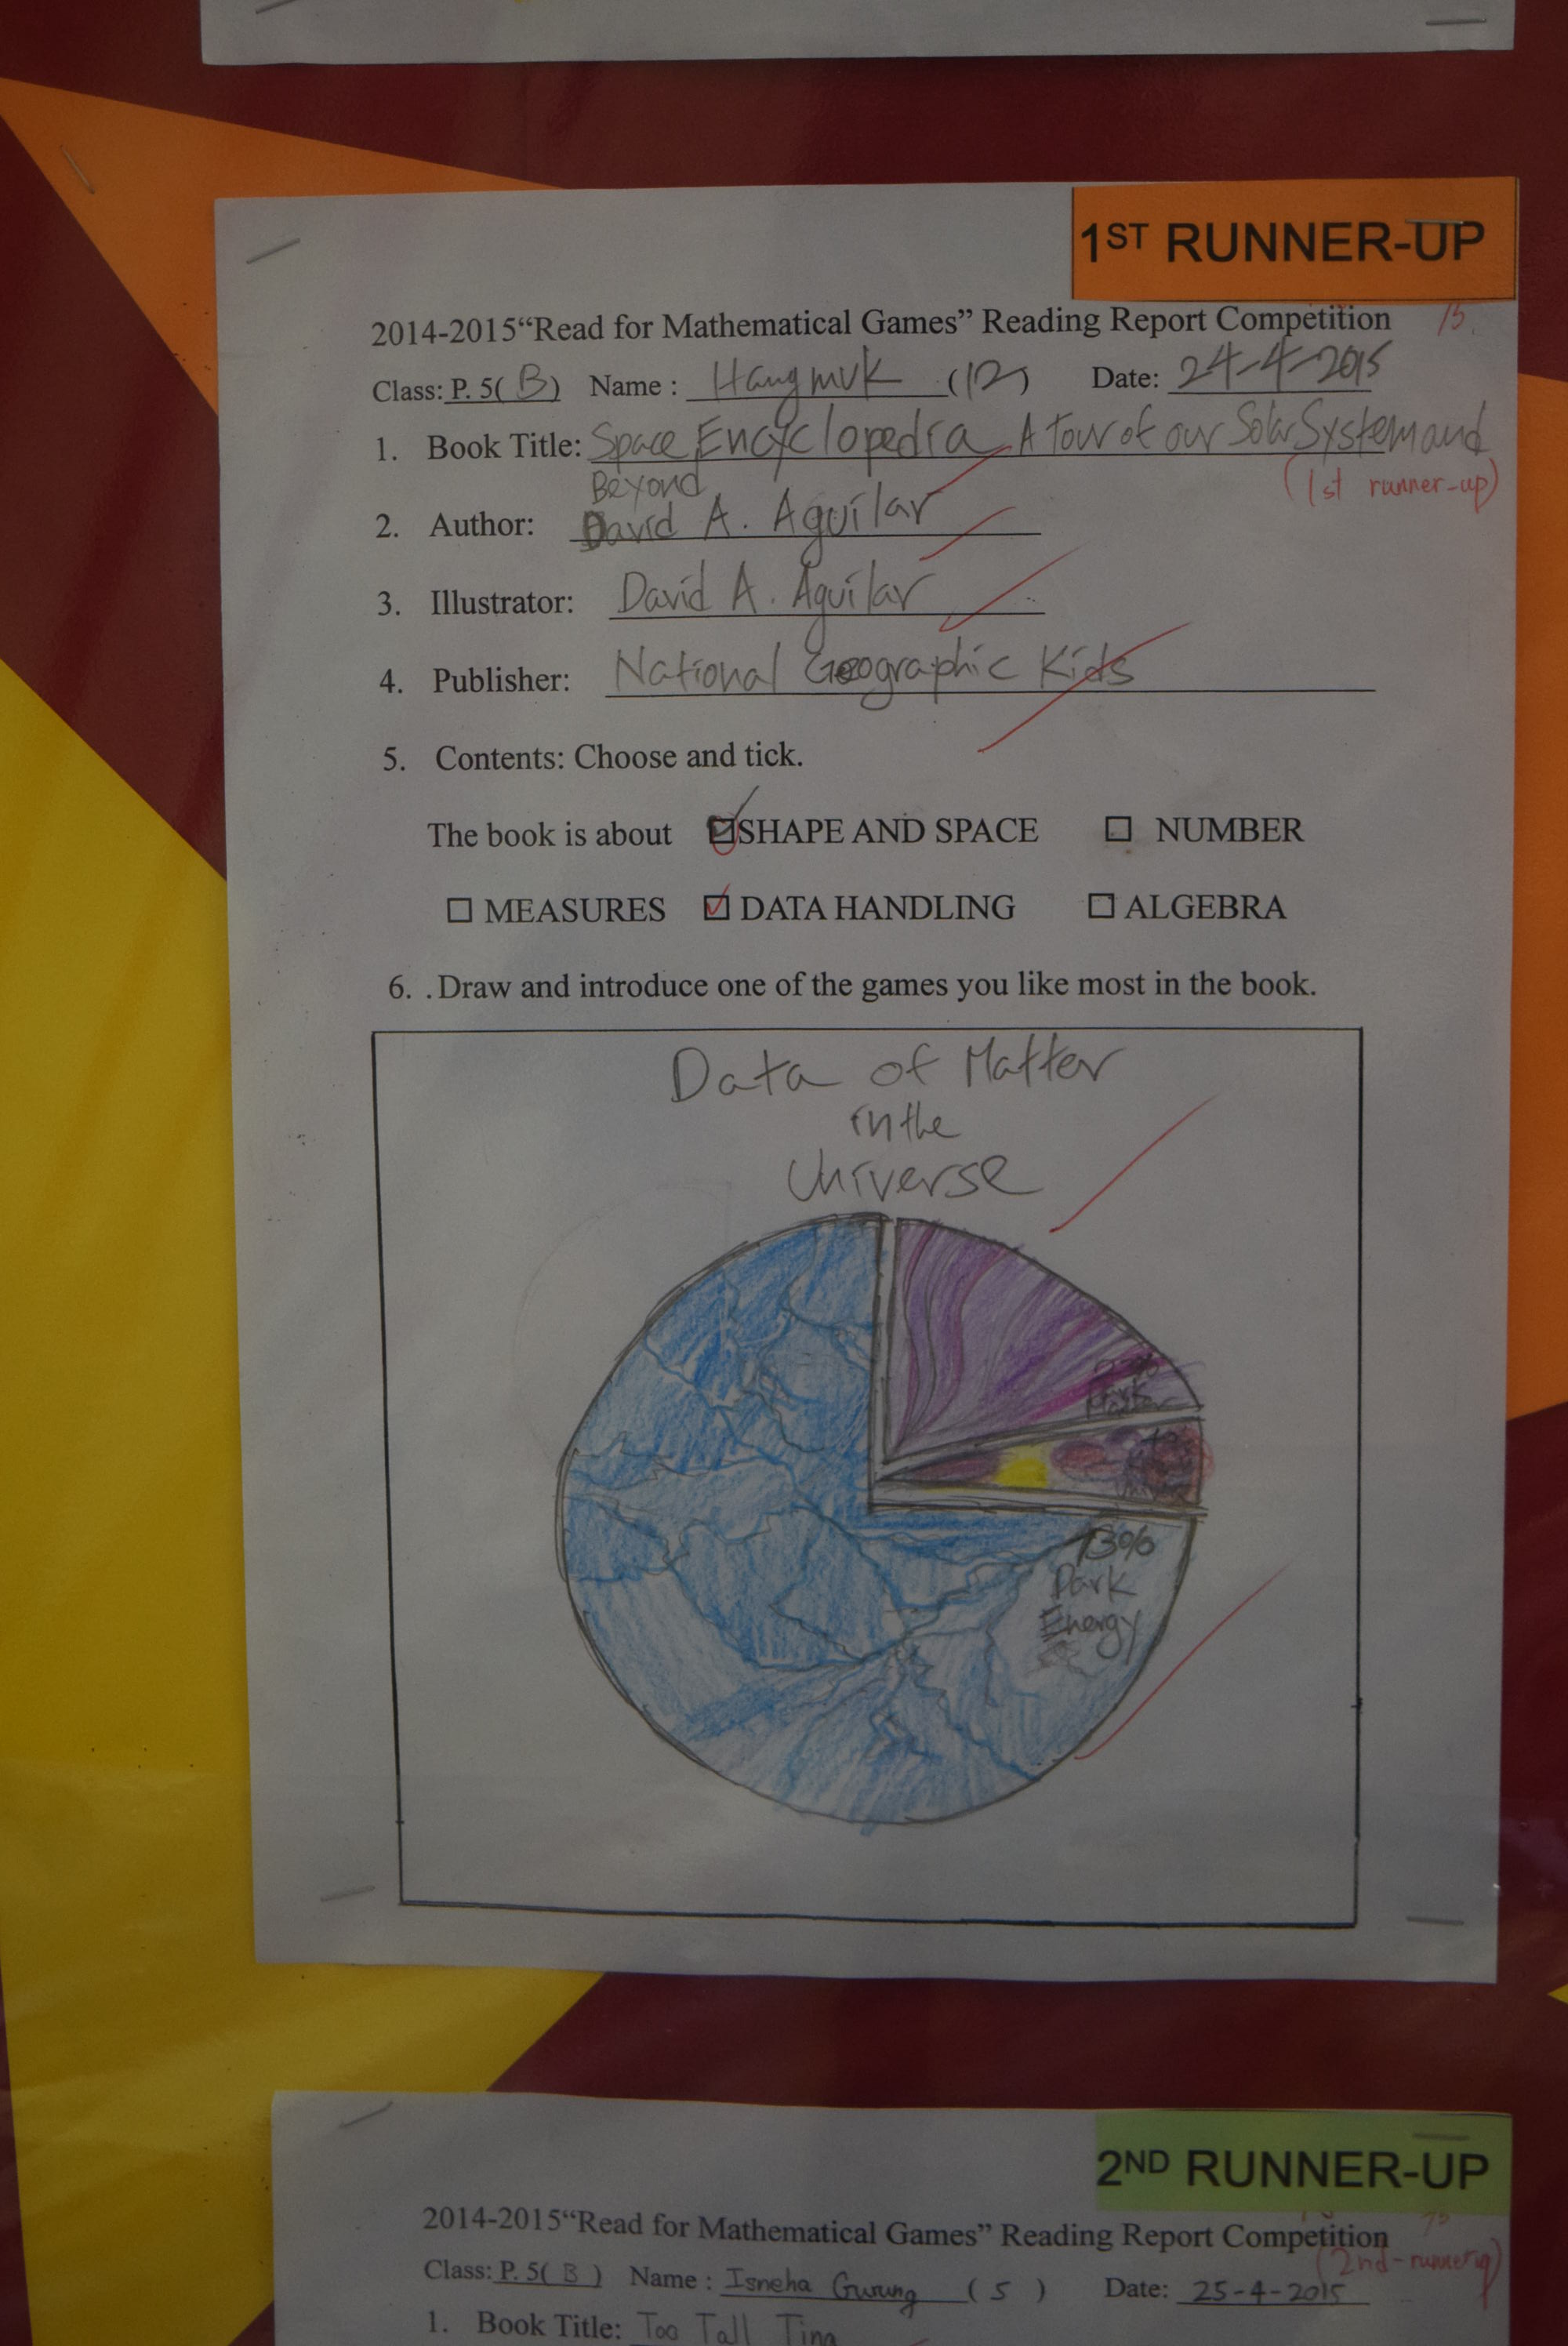 1ST RUNNER-UP
2014-2015“Read for Mathematical Games” Reading Report Competition
Class: P. 5( B ) Name : Hangmuk (12) Date: 24-4-2015
1. Book Title: Space Encyclopedia A Tour of our Solar System and
Beyond
(1st runner-up)
2. Author: David A. Aguilar
3. Illustrator: David A. Aguilar
4. Publisher: National Geographic Kids
5. Contents: Choose and tick.
The book is about ☑ SHAPE AND SPACE ☐ NUMBER
☐ MEASURES ☑ DATA HANDLING ☐ ALGEBRA
6. . Draw and introduce one of the games you like most in the book.
Data of Matter
in the
Universe
Matter
73%
Dark
Energy
2ND RUNNER-UP
2014-2015“Read for Mathematical Games” Reading Report Competition
Class: P. 5( B ) Name : Isneha Gurung ( 5 ) Date: 25-4-2015
1. Book Title: Too Tall Tina